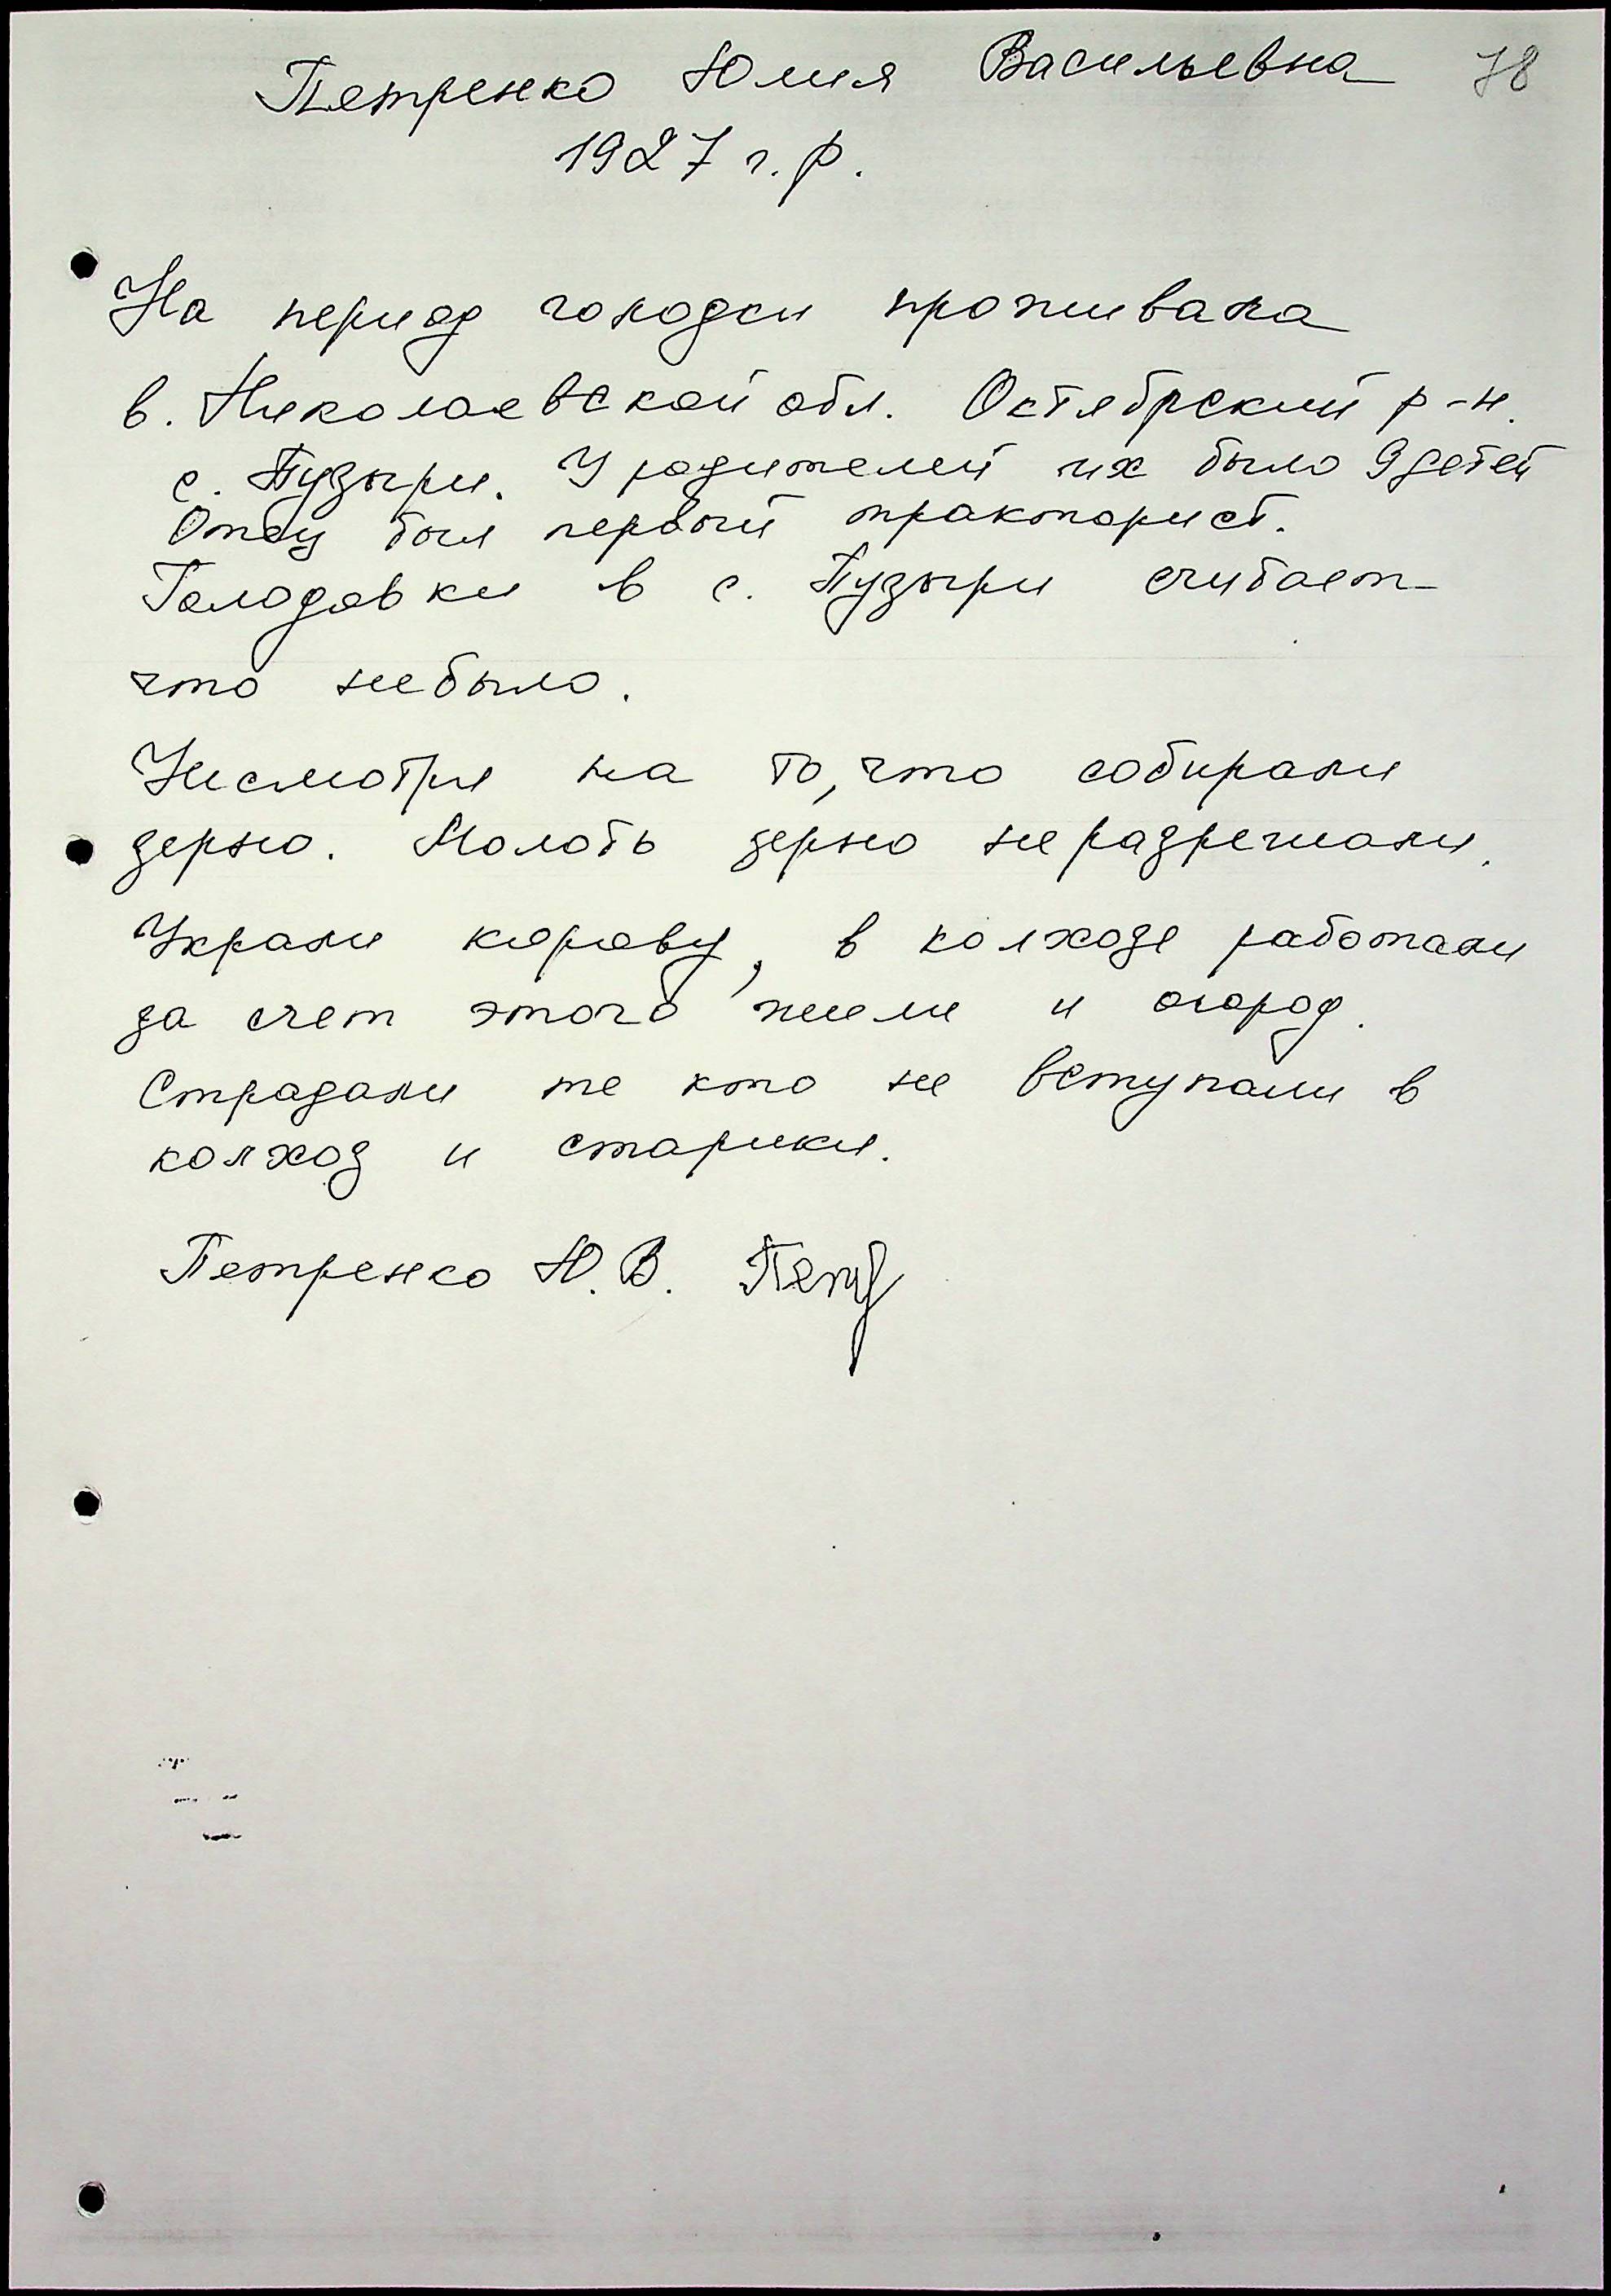 Петренко Юлия Васильевна 78
1927 г.р.
На период голодки проживала
в. Николаевской обл. Октябрский р-н.
с. Пузыри. У родителей их было 9 детей
Отец был первый тракторист.
Голодовки в с. Пузыри считает
что небыло.
Несмотря на то, что собирали
зерно. Молоть зерно не разрешали.
Украли корову, в колхозе работали
за счет этого жили и огород.
Страдали те кто не вступали в
колхоз и старики.
Петренко Ю.В. Петр